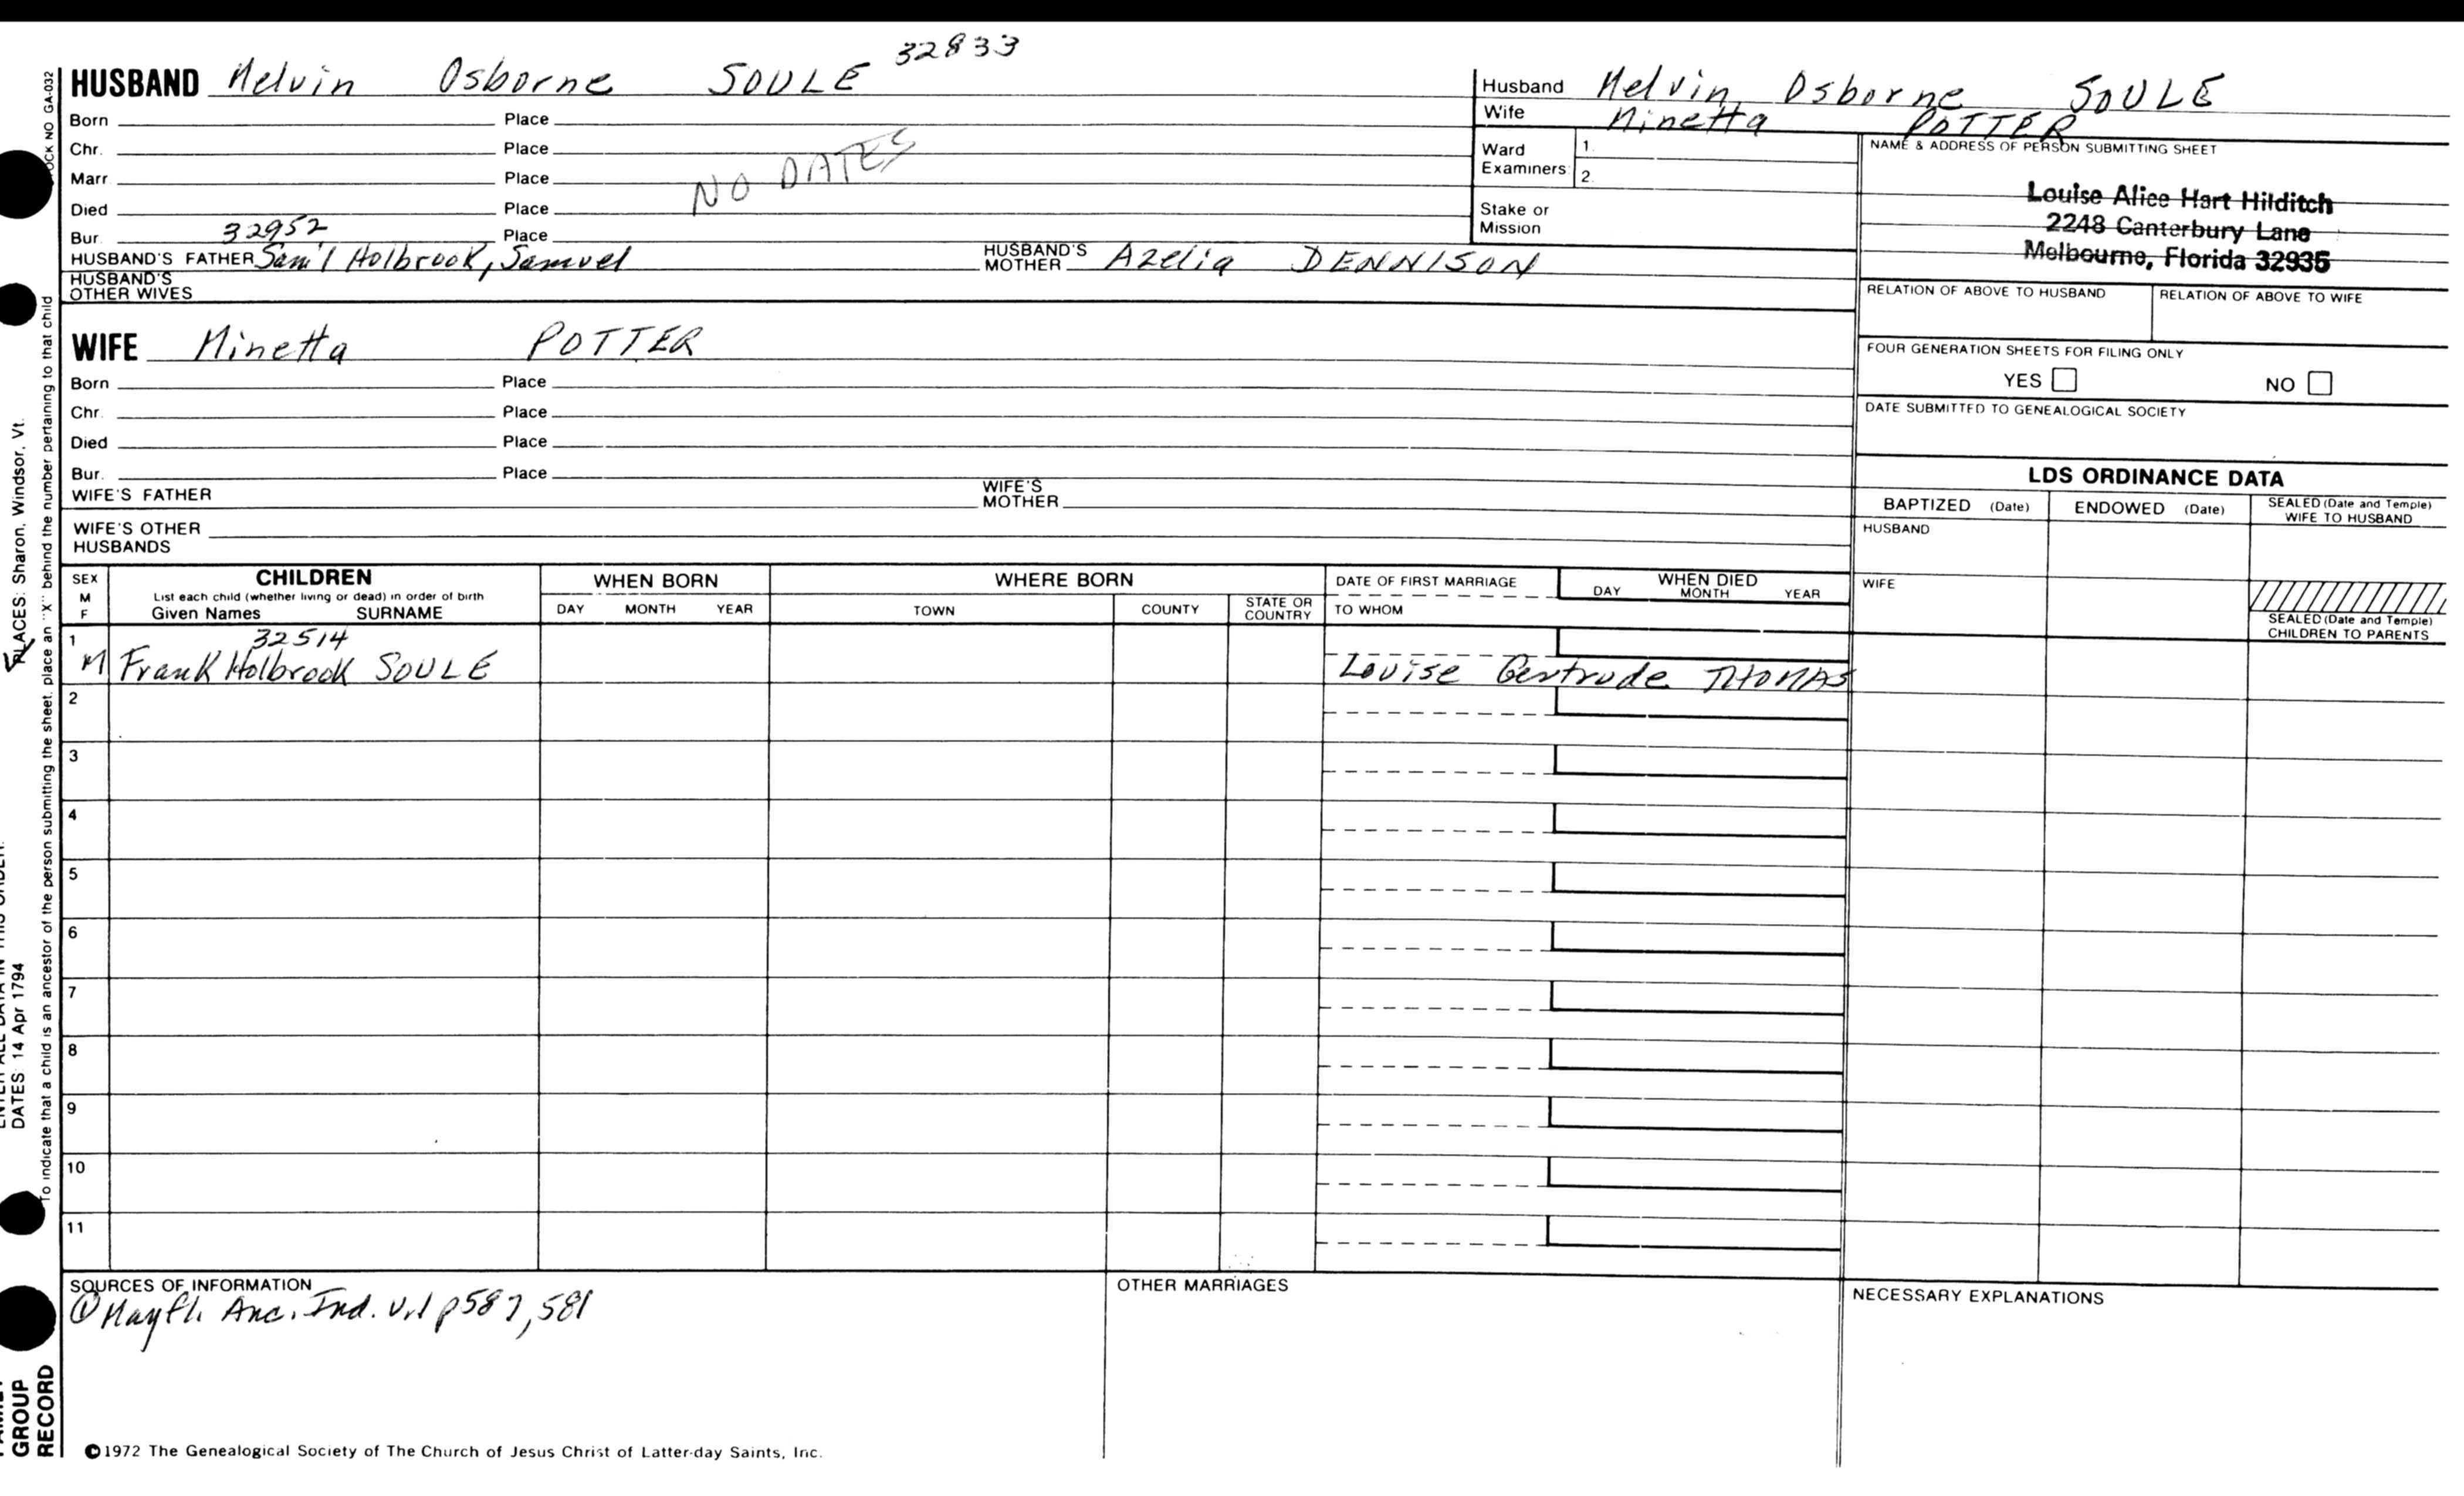 32833
HUSBAND Melvin Osborne SOULE
Born Place
Chr. Place
Marr. Place
NO DATES
Died Place
32952
Bur. Place
HUSBAND'S FATHER Sam'l Holbrook, Samuel HUSBAND'S MOTHER Azelia DENNISON
HUSBAND'S
OTHER WIVES
WIFE Minetta POTTER
Born Place
Chr. Place
Died Place
Bur. Place
WIFE'S FATHER WIFE'S MOTHER
WIFE'S OTHER
HUSBANDS
Husband Melvin Osborne SOULE
Wife Minetta POTTER
Ward
Examiners
1.
2.
Stake or
Mission
NAME & ADDRESS OF PERSON SUBMITTING SHEET
Louise Alice Hart Hilditch
2248 Canterbury Lane
Melbourne, Florida 32935
RELATION OF ABOVE TO HUSBAND RELATION OF ABOVE TO WIFE
FOUR GENERATION SHEETS FOR FILING ONLY
YES NO
DATE SUBMITTED TO GENEALOGICAL SOCIETY
LDS ORDINANCE DATA
BAPTIZED (Date) ENDOWED (Date) SEALED (Date and Temple)
WIFE TO HUSBAND
HUSBAND
WIFE
SEALED (Date and Temple)
CHILDREN TO PARENTS
SEX
M
F
CHILDREN
List each child (whether living or dead) in order of birth
Given Names SURNAME
WHEN BORN
DAY MONTH YEAR
WHERE BORN
TOWN COUNTY STATE OR COUNTRY
DATE OF FIRST MARRIAGE
TO WHOM
WHEN DIED
DAY MONTH YEAR
1 32514
M Frank Holbrook SOULE Louise Gertrude THOMAS
2
3
4
5
6
7
8
9
10
11
SOURCES OF INFORMATION
① Mayfl. Anc. Ind. p587, 581
OTHER MARRIAGES
NECESSARY EXPLANATIONS
©1972 The Genealogical Society of The Church of Jesus Christ of Latter-day Saints, Inc.
NO GA-032
To indicate that a child is an ancestor of the person submitting the sheet, place an "X" behind the number pertaining to that child
PLACES: Sharon, Windsor, Vt.
DATES: 14 Apr 1794
GROUP
RECORD